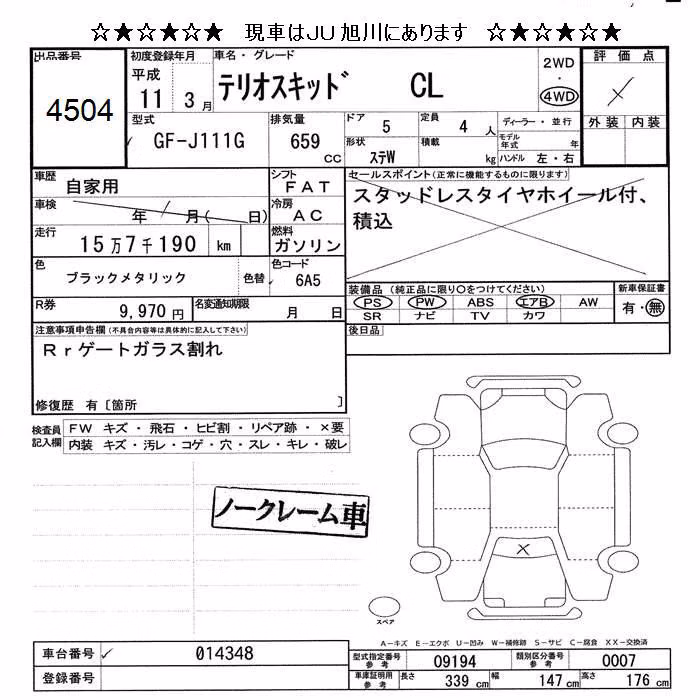 ☆★☆★☆★☆ 現車はJU旭川にあります ☆★☆★☆★☆
出品番号 初度登録年月 車名・グレード 評価点
4504 平成 11 3月 テリオスキッド CL 2WD・4WD
外装 内装
型式 排気量 ドア 定員 ディーラー・並行
GF-J111G 659cc 5 4人 モデル年式 年
形状 積載
ステW kg ハンドル 左・右
車歴 自家用 シフト FAT セールスポイント(正常に機能するものに限ります)
車検 年 / 月( 日) 冷房 AC スタッドレスタイヤホイール付、
積込
走行 15万7千190 km 燃料 ガソリン
色 ブラックメタリック 色替 色コード 6A5
装備品(純正品に限り○をつけてください) 新車保証書
R券 9,970円 名変通知期限 月 日 PS PW ABS エアB AW 有・無
SR ナビ TV カワ
注意事項申告欄(不具合内容等は具体的に記入して下さい) 後日品
Rrゲートガラス割れ
修復歴 有〔箇所 〕
検査員記入欄 FW キズ・飛石・ヒビ割・リペア跡・×要
内装 キズ・汚レ・コゲ・穴・スレ・キレ・破レ
ノークレーム車
X
スペア
A-キズ E-エクボ U-凹み W-補修跡 S-サビ C-腐食 XX-交換済
車台番号 014348 型式指定番号 参考 09194 類別区分番号 参考 0007
登録番号 車庫証明用 参考 長さ 339 cm 幅 147 cm 高さ 176 cm